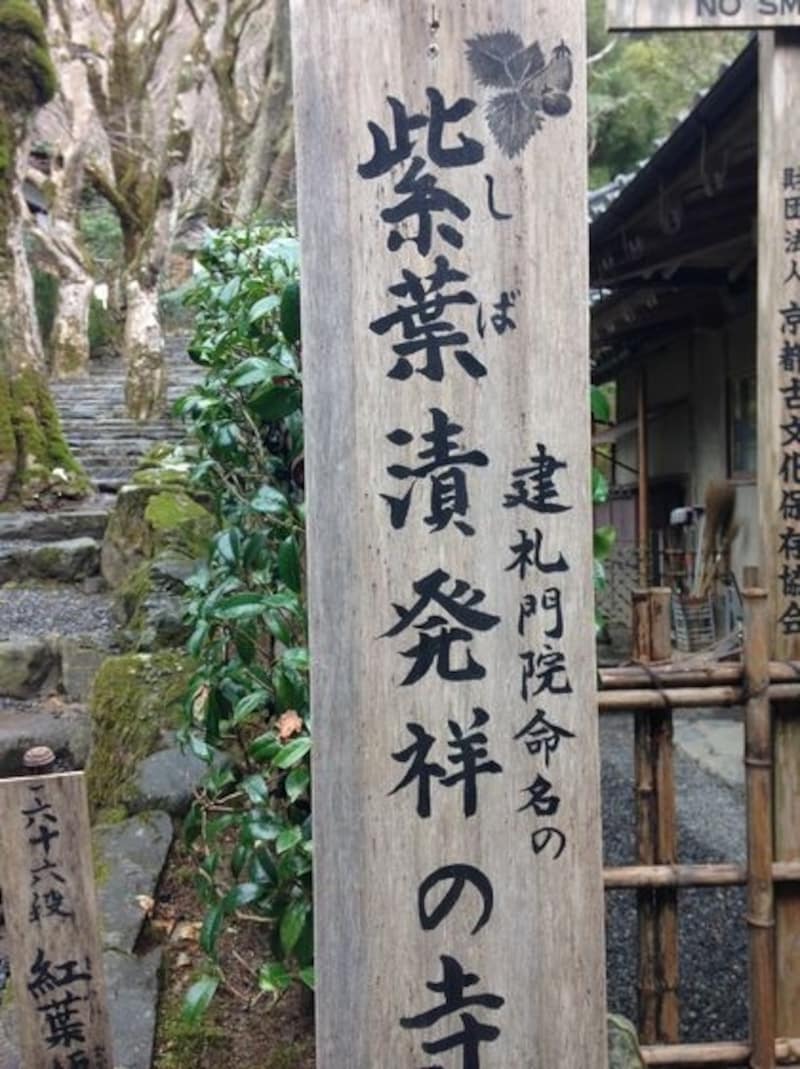 NO SM
財団法人 京都古文化保存協会
建札門院命名の
紫葉漬発祥の寺
しば
六十六段
紅葉